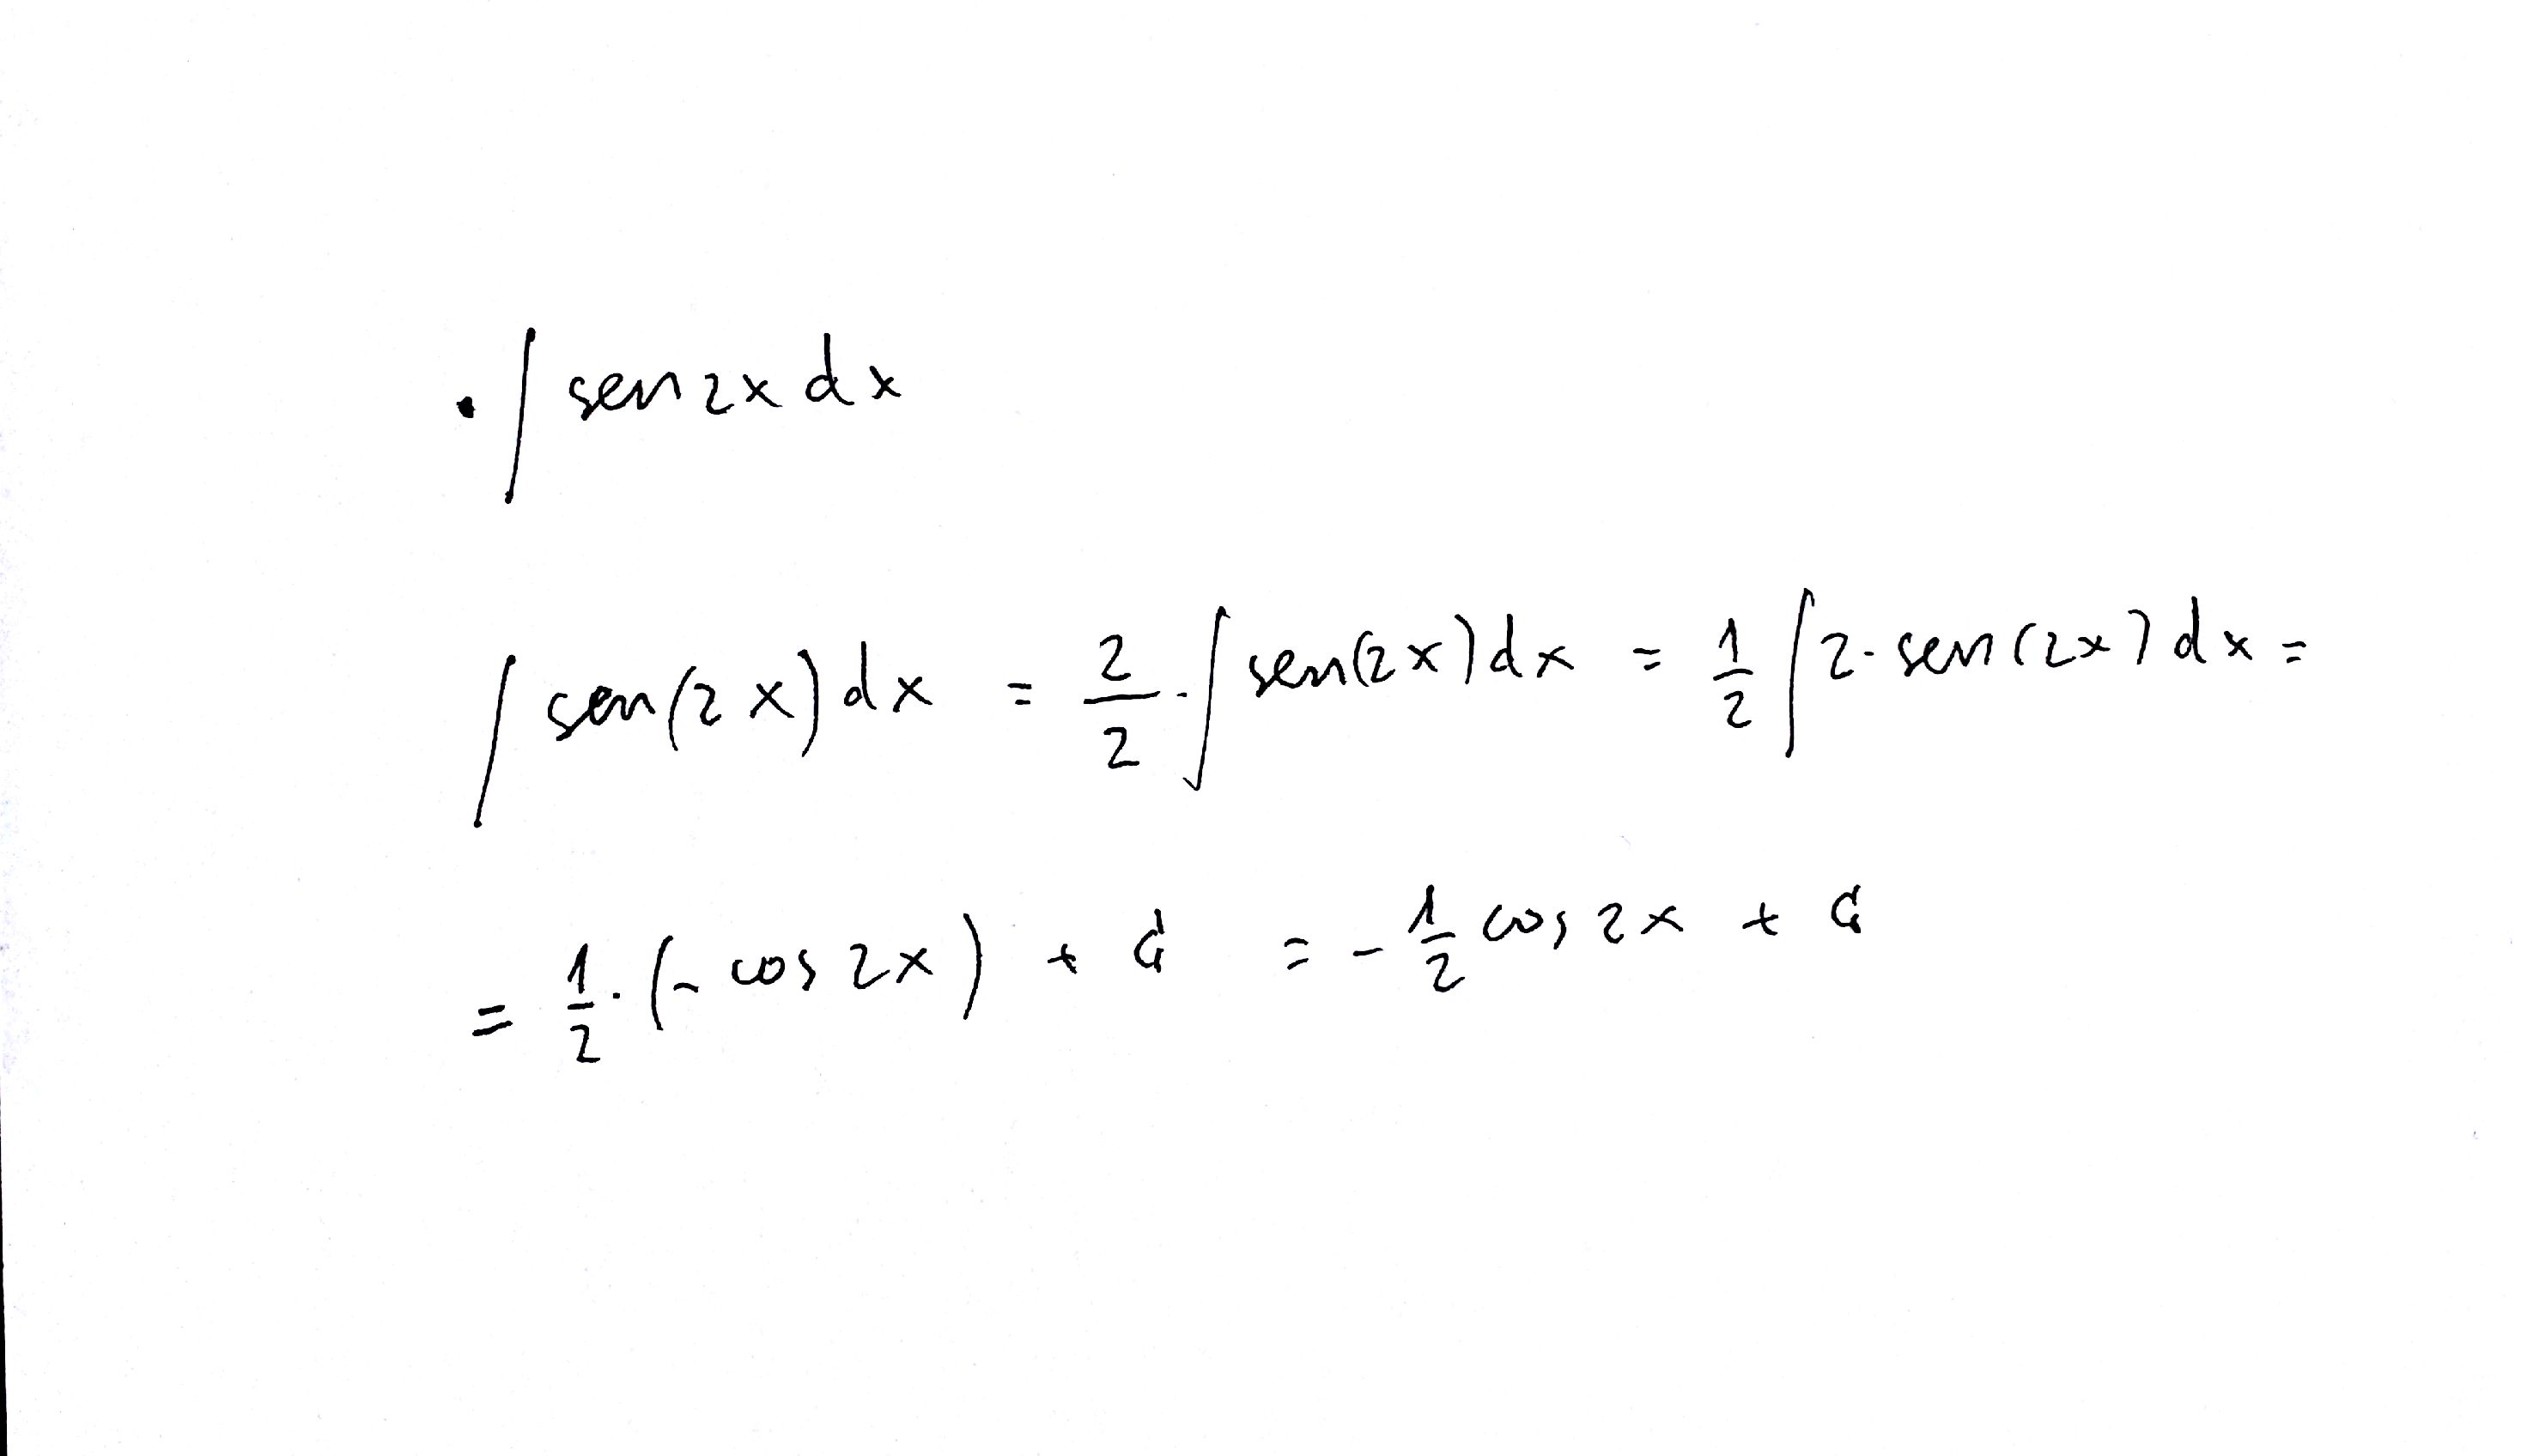 · ∫ sen 2x dx
∫ sen(2x) dx = 2/2 · ∫ sen(2x) dx = 1/2 ∫ 2 · sen(2x) dx =
= 1/2 · (- cos 2x) + C = - 1/2 cos 2x + C